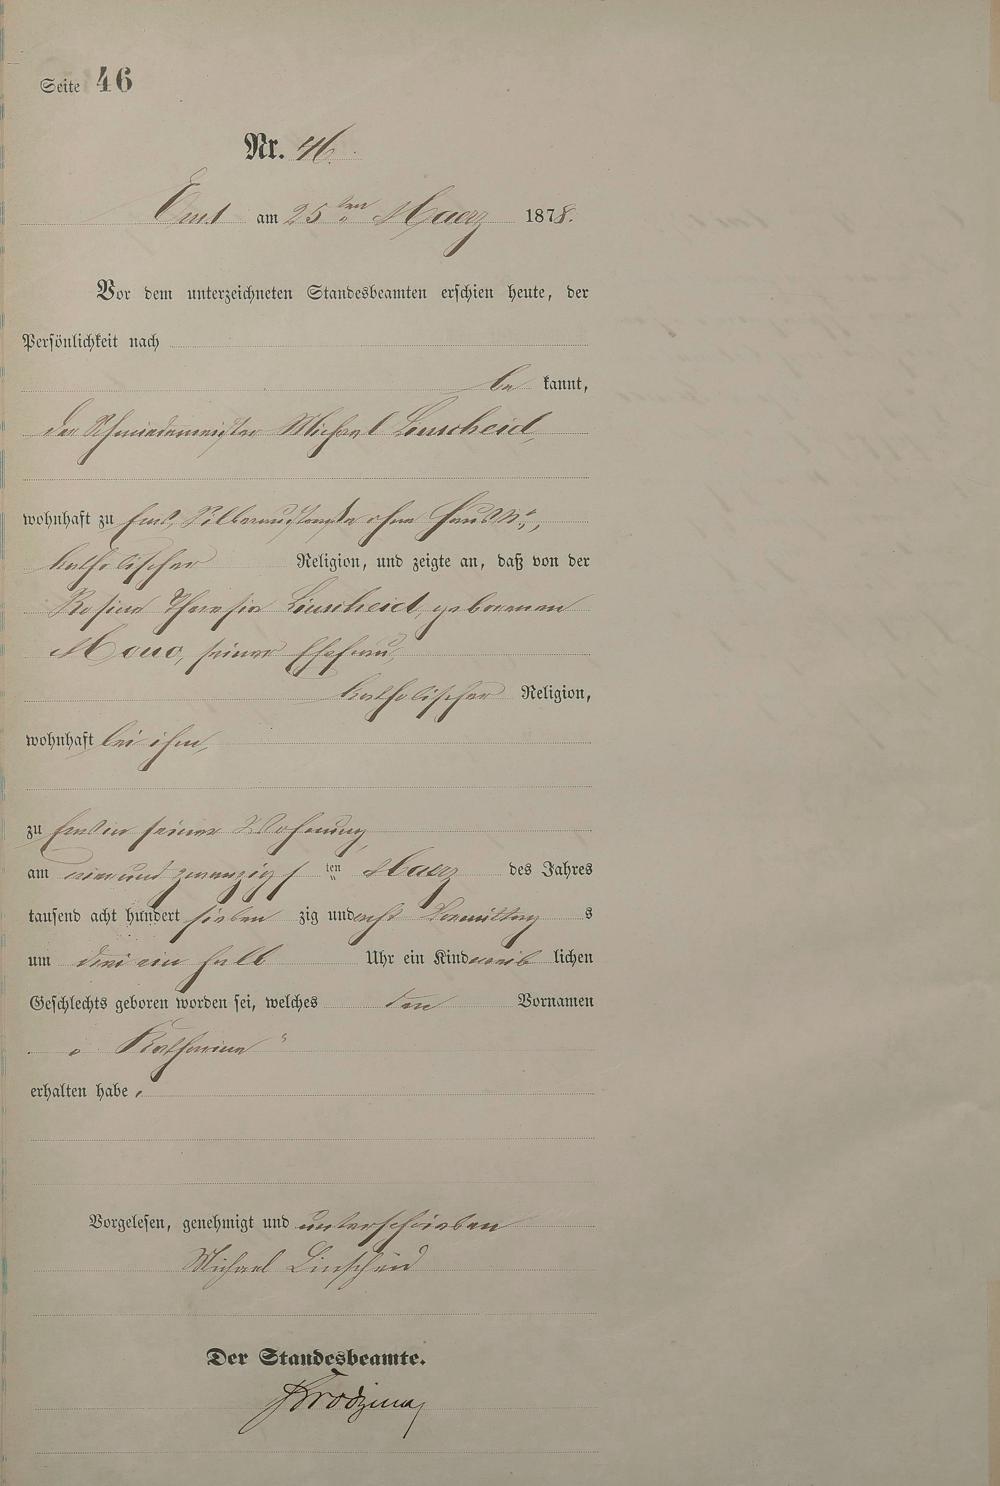 Seite 46
Nr. 46.
Ems am 25ten Maerz 1878.
Vor dem unterzeichneten Standesbeamten erschien heute, der
Persönlichkeit nach
be kannt,
der Schmiedemeister Michael Linscheid,
wohnhaft zu Ems, Silberaustraße ohne Haus No,
katholischer Religion, und zeigte an, daß von der
Rosina Theresia Linscheid, geborenen
seiner Ehefrau,
katholischer Religion,
wohnhaft bei ihm,
zu Ems in seiner Wohnung
am ein und zwanzigsten Maerz des Jahres
tausend acht hundert sieben zig und acht Vormittag s
um drei ein halb Uhr ein Kind weib lichen
Geschlechts geboren worden sei, welches den Vornamen
„Katharina"
erhalten habe.
Vorgelesen, genehmigt und unterschrieben
Michael Linscheid
Der Standesbeamte.